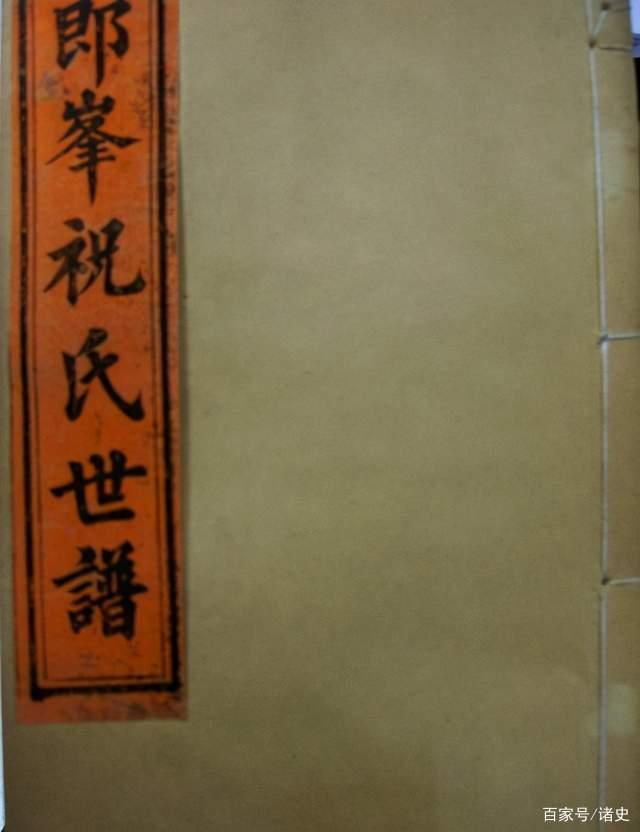 郎峯祝氏世譜
百家号/诸史